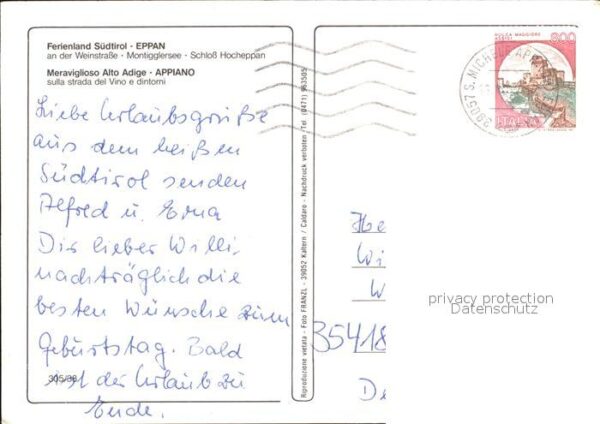 Ferienland Südtirol · EPPAN
an der Weinstraße · Montigglersee · Schloß Hocheppan
Meraviglioso Alto Adige · APPIANO
sulla strada del Vino e dintorni
Liebe Urlaubsgrüße
aus dem heißen
Südtirol senden
Alfred u. Erna
Dir lieber Willi,
nachträglich die
besten Wünsche zum
Geburtstag. Bald
ist der Urlaub zu
Ende.
305/88
Riproduzione vietata - Foto FRANZL - 39052 Kaltern / Caldaro - Nachdruck verboten / Tel. (0471) 963505
ROCCA MAGGIORE
ASSISI
800
ITALIA
39057 S. MICHELE APP
He
Wi
W
35418
De
privacy protection
Datenschutz